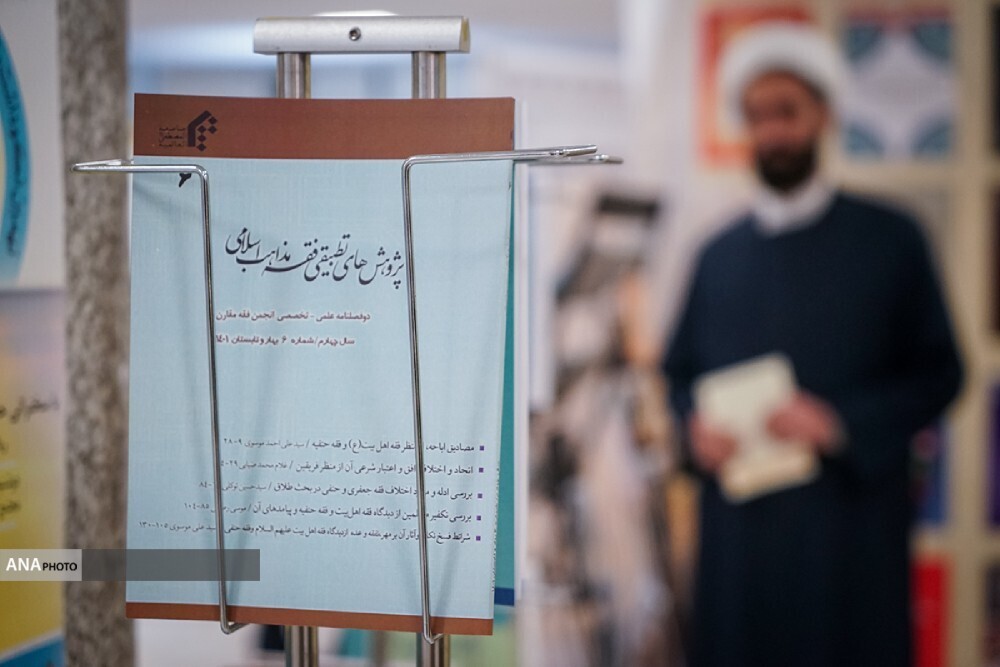 ۶
پژوهش‌های تطبیقی فقه مذاهب اسلامی
دوفصلنامه علمی - تخصصی انجمن فقه مقارن
سال چهارم / شماره ۶ بهار و تابستان ۱۴۰۱
مصادیق اباحه، از منظر فقه اهل بیت(ع) و فقه حنفیه / سید علی احمد موسوی ۹-۲۸
اتحاد و اختلاف افق و اعتبار شرعی آن از منظر فریقین / غلام محمد صابی ۲۹-
بررسی ادله و اختلاف فقه جعفری و حنفی در بحث طلاق / سیدحسین
بررسی تکفیر مسلمین از دیدگاه فقه اهل بیت و فقه حنفیه و پیامدهای آن / موسی ۸۵-۱۰۴
شرائط فسخ نکاح و آثار آن بر مهر، نفقه و عده از دیدگاه فقه اهل بیت علیهم السلام و فقه حنفی سید علی موسوی ۱۰۵-۱۳۰
ANAPHOTO